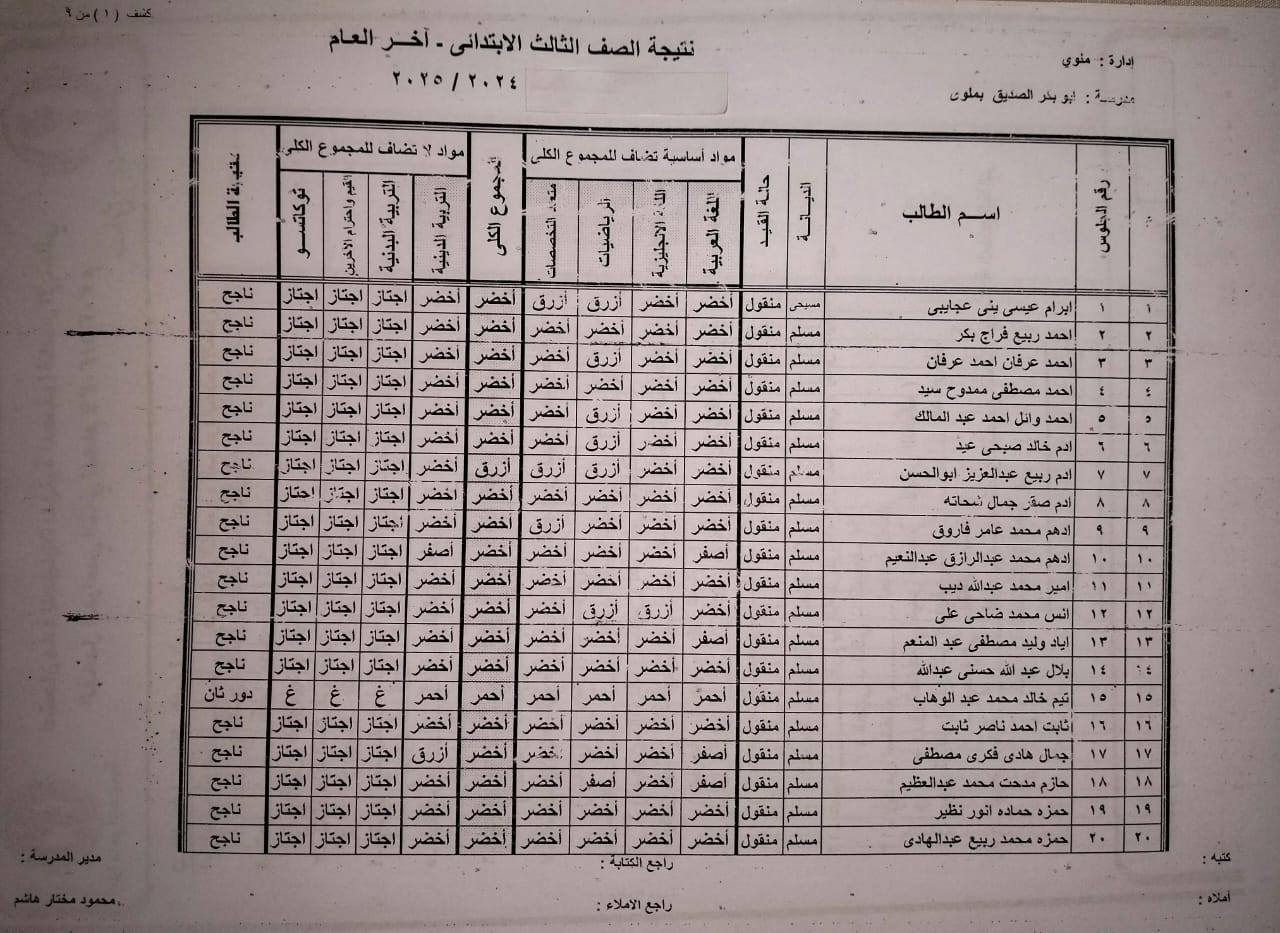 كشف (١) من ٩
إدارة : ملوي
نتيجة الصف الثالث الابتدائى - آخر العام
مدرسة : ابو بكر الصديق بملوى
٢٠٢٤ / ٢٠٢٥
م رقم الجلوس اسم الطالب الديانة حالة القيد مواد أساسية تضاف للمجموع الكلى المجموع الكلى مواد لا تضاف للمجموع الكلى نتيجة الطالب
اللغة العربية اللغة الانجليزية الرياضيات متعدد التخصصات التربية الدينية التربية البدنية القيم واحترام الاخرين توكاتسو
١ ١ ابرام عيسى ينى عجايبى مسيحى منقول أخضر أخضر أزرق أزرق أخضر أخضر اجتاز اجتاز اجتاز ناجح
٢ ٢ احمد ربيع فراج بكر مسلم منقول أخضر أخضر أخضر أخضر أخضر أخضر اجتاز اجتاز اجتاز ناجح
٣ ٣ احمد عرفان احمد عرفان مسلم منقول أخضر أخضر أزرق أخضر أخضر أخضر اجتاز اجتاز اجتاز ناجح
٤ ٤ احمد مصطفى ممدوح سيد مسلم منقول أخضر أخضر أخضر أخضر أخضر أخضر اجتاز اجتاز اجتاز ناجح
٥ ٥ احمد وائل احمد عبد المالك مسلم منقول أخضر أخضر أزرق أخضر أخضر أخضر اجتاز اجتاز اجتاز ناجح
٦ ٦ ادم خالد صبحى عيد مسلم منقول أخضر أخضر أزرق أخضر أخضر أخضر اجتاز اجتاز اجتاز ناجح
٧ ٧ ادم ربيع عبدالعزيز ابوالحسن مسلم منقول أخضر أخضر أزرق أزرق أزرق أخضر اجتاز اجتاز اجتاز ناجح
٨ ٨ ادم صقر جمال شحاته مسلم منقول أخضر أخضر أخضر أخضر أخضر أخضر اجتاز اجتاز اجتاز ناجح
٩ ٩ ادهم محمد عامر فاروق مسلم منقول أخضر أخضر أخضر أزرق أخضر أخضر اجتاز اجتاز اجتاز ناجح
١٠ ١٠ ادهم محمد عبدالرازق عبدالنعيم مسلم منقول أصفر أخضر أخضر أخضر أخضر أصفر اجتاز اجتاز اجتاز ناجح
١١ ١١ امير محمد عبدالله ديب مسلم منقول أخضر أخضر أخضر أخضر أخضر أخضر اجتاز اجتاز اجتاز ناجح
١٢ ١٢ انس محمد ضاحى على مسلم منقول أخضر أزرق أزرق أخضر أخضر أخضر اجتاز اجتاز اجتاز ناجح
١٣ ١٣ اياد وليد مصطفى عبد المنعم مسلم منقول أصفر أخضر أخضر أخضر أخضر أخضر اجتاز اجتاز اجتاز ناجح
١٤ ١٤ بلال عبد الله حسنى عبدالله مسلم منقول أخضر أخضر أخضر أخضر أخضر أخضر اجتاز اجتاز اجتاز ناجح
١٥ ١٥ تيم خالد محمد عبد الوهاب مسلم منقول أحمر أحمر أحمر أحمر أحمر أحمر غ غ غ دور ثان
١٦ ١٦ ثابت احمد ناصر ثابت مسلم منقول أخضر أخضر أخضر أخضر أخضر أخضر اجتاز اجتاز اجتاز ناجح
١٧ ١٧ جمال هادى فكرى مصطفى مسلم منقول أصفر أخضر أخضر أخضر أخضر أزرق اجتاز اجتاز اجتاز ناجح
١٨ ١٨ حازم مدحت محمد عبدالعظيم مسلم منقول أصفر أخضر أصفر أخضر أخضر أخضر اجتاز اجتاز اجتاز ناجح
١٩ ١٩ حمزه حماده انور نظير مسلم منقول أخضر أخضر أخضر أخضر أخضر أخضر اجتاز اجتاز اجتاز ناجح
٢٠ ٢٠ حمزه محمد ربيع عبدالهادى مسلم منقول أخضر أخضر أخضر أخضر أخضر أخضر اجتاز اجتاز اجتاز ناجح
كتبه : راجع الكتابة : مدير المدرسة :
أملاه : راجع الاملاء : محمود مختار هاشم